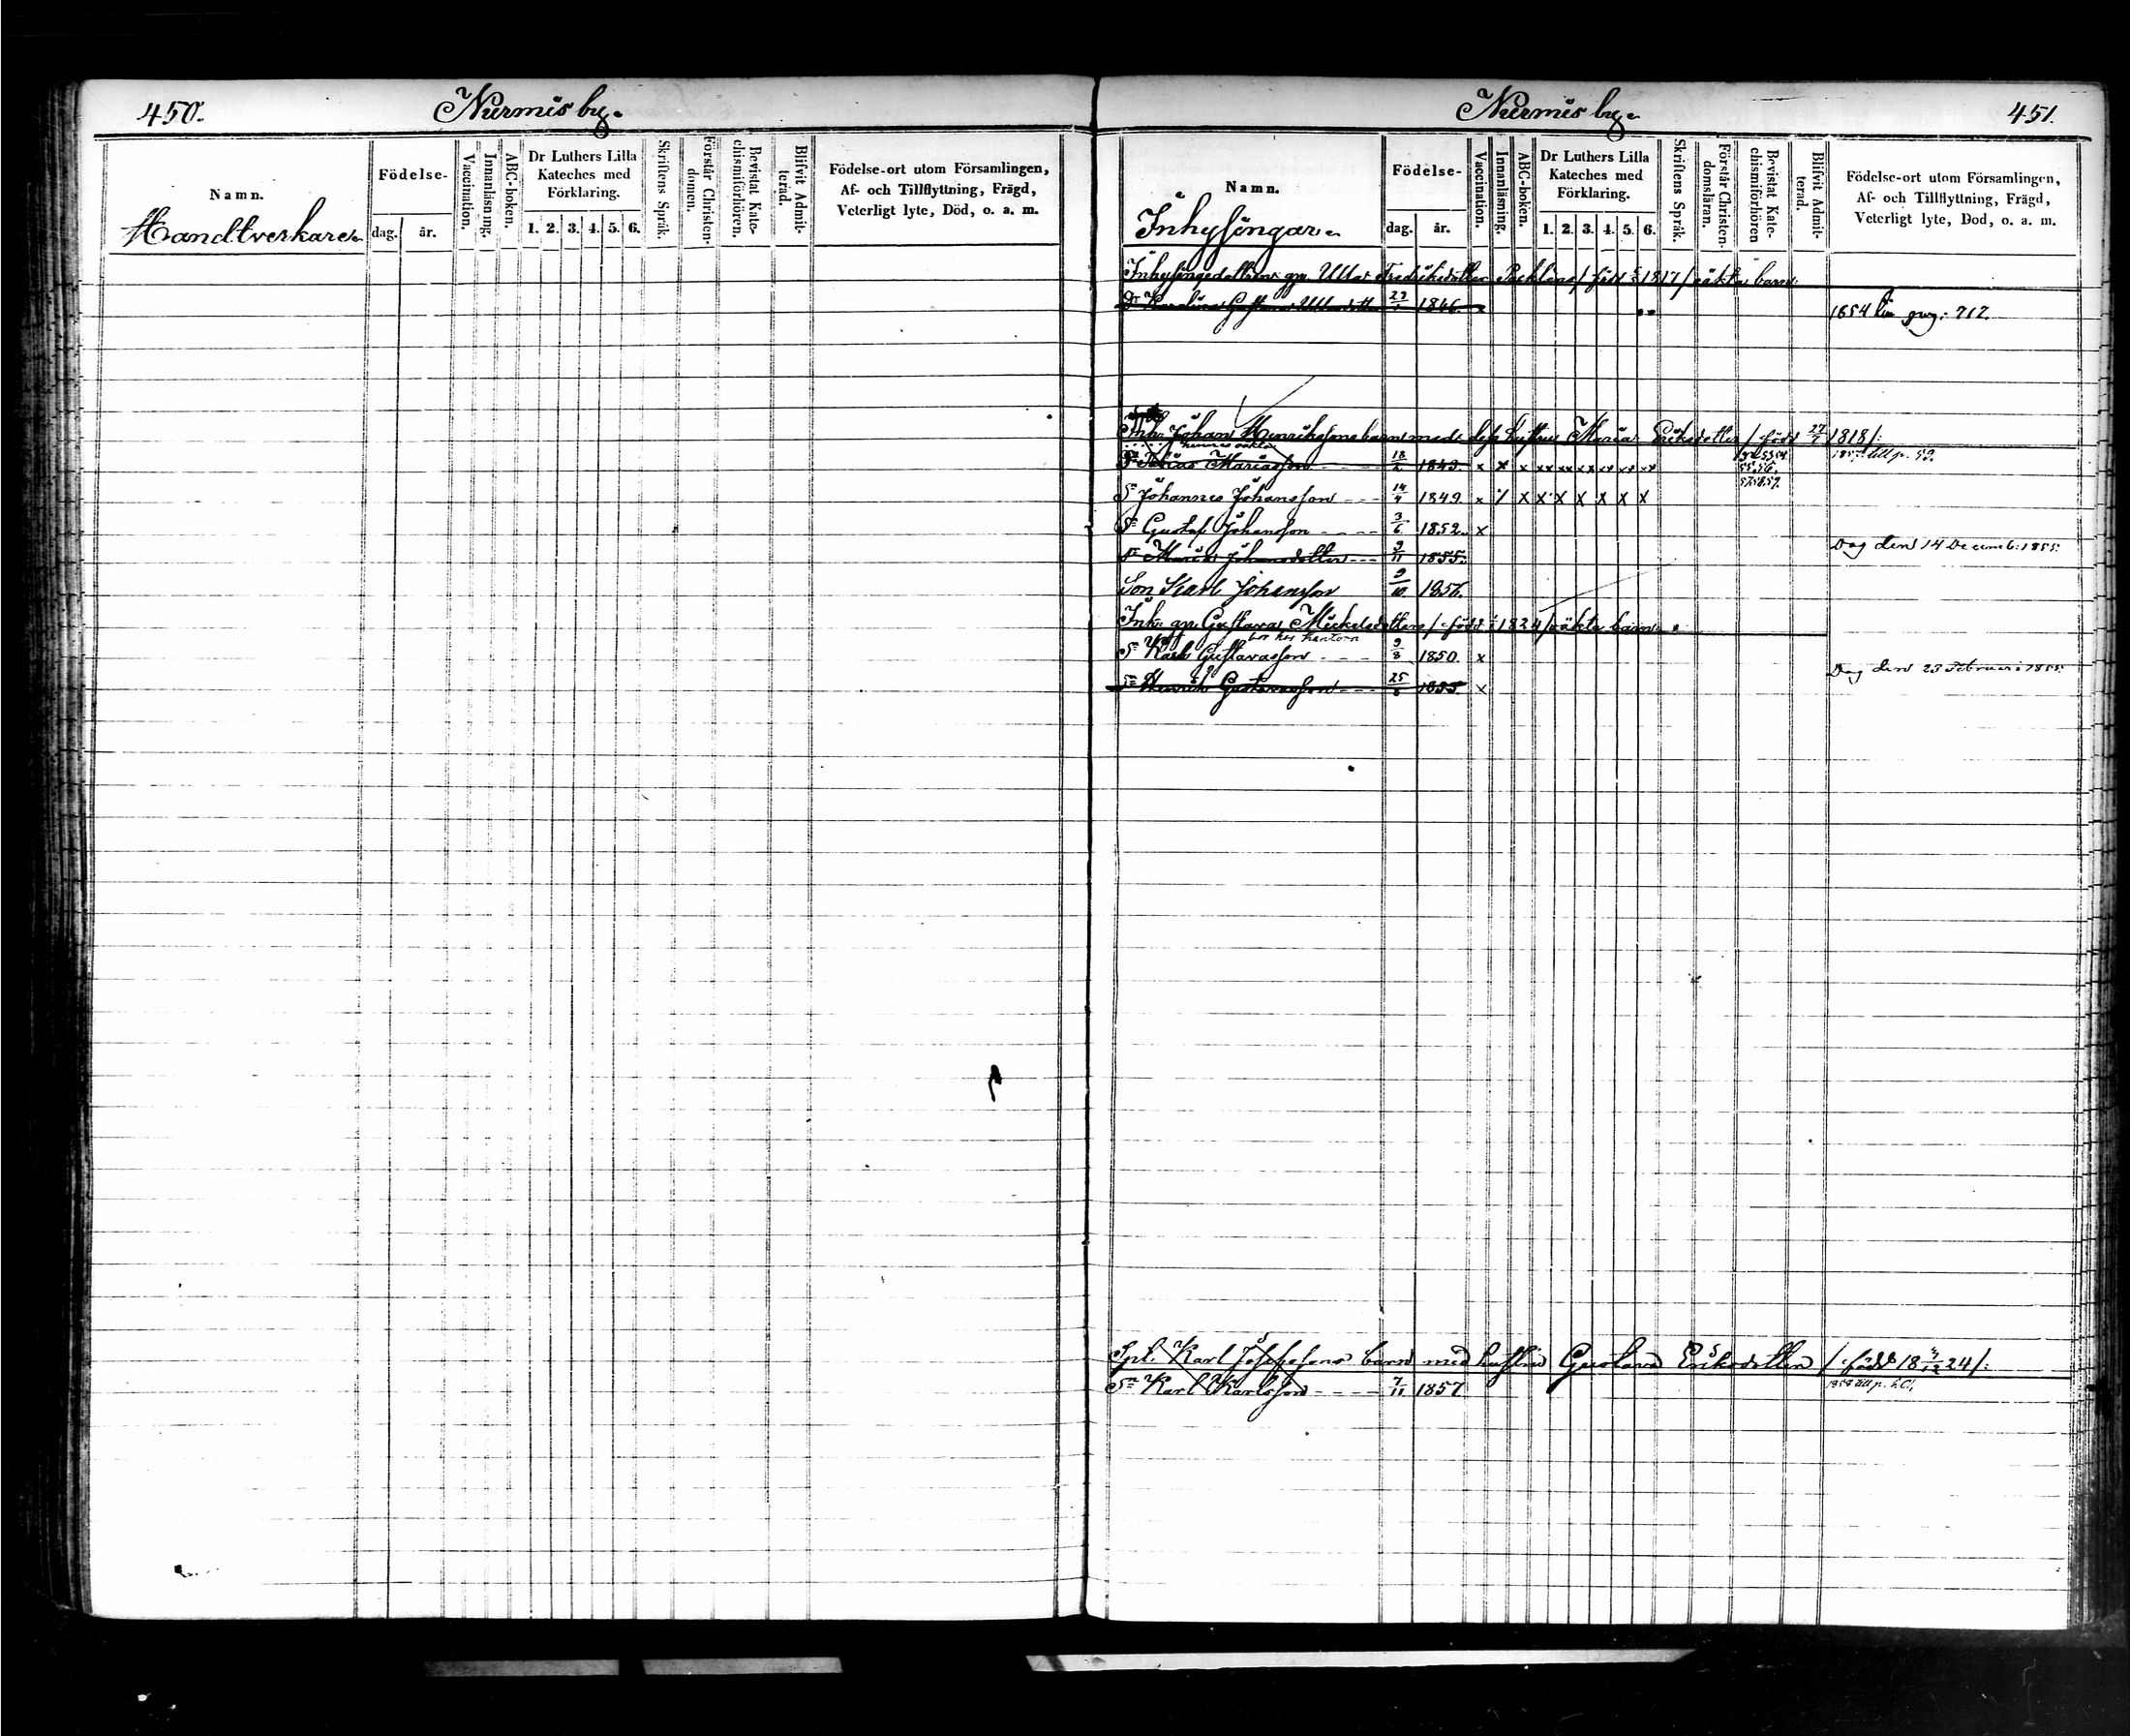 450.
Nurmis by.
Namn.
Handtverkare.
Födelse-
dag.
år.
Vaccination.
Innanläsning.
ABC-boken.
Dr Luthers Lilla
Kateches med
Förklaring.
1. 2. 3. 4. 5. 6.
Skriftens Språk.
Förstår Christen-
domen.
Bevistat Kate-
chismiförhören.
Blifvit Admit-
terad.
Födelse-ort utom Församlingen,
Af- och Tillflyttning, Frägd,
Veterligt lyte, Död, o. a. m.
Nurmis by.
451.
Namn.
Inhysingar.
Födelse-
dag.
år.
Vaccination.
Innanläsning.
ABC-boken.
Dr Luthers Lilla
Kateches med
Förklaring.
1. 2. 3. 4. 5. 6.
Skriftens Språk.
Förstår Christen-
domsläran.
Bevistat Kate-
chismiförhören
Blifvit Admit-
terad.
Födelse-ort utom Församlingen,
Af- och Tillflyttning, Frägd,
Veterligt lyte, Dod, o. a. m.
Fredriksdotter född 1817 oäkta barn:
1846. 1854 pag: 717.
Inh. Johan Henrikssons barn med dess hustru Maria Eriksdotter /:född 27/7 1818/:
hennes oäkta
Mariasson 18/2 1843 x x x 1857 till p. 52.
Sn Johannes Johansson 14/4 1849. x x x x x x x x
Sn Gustaf Johansson 3/6 1852. x
Maria Johansdotter 9/11 1855. Dog den 14 Decemb: 1855.
Son Karl Johansson 9/10 1856.
Inh. gp. Gustava Mickelsdotters /:född 1824/ oäkta barn.
bor hos kantorn
Sn Karl Gustavasson 9/8 1850. x
Sn Henrik Gustavasson 25/8 1853 x Dog den 23 Februari 1855.
Karl Josefssons barn med hustru Gustava Eriksdotter /:född 18 24/:
Sn Karl Karlsson 7/11 1857 1858 till p.